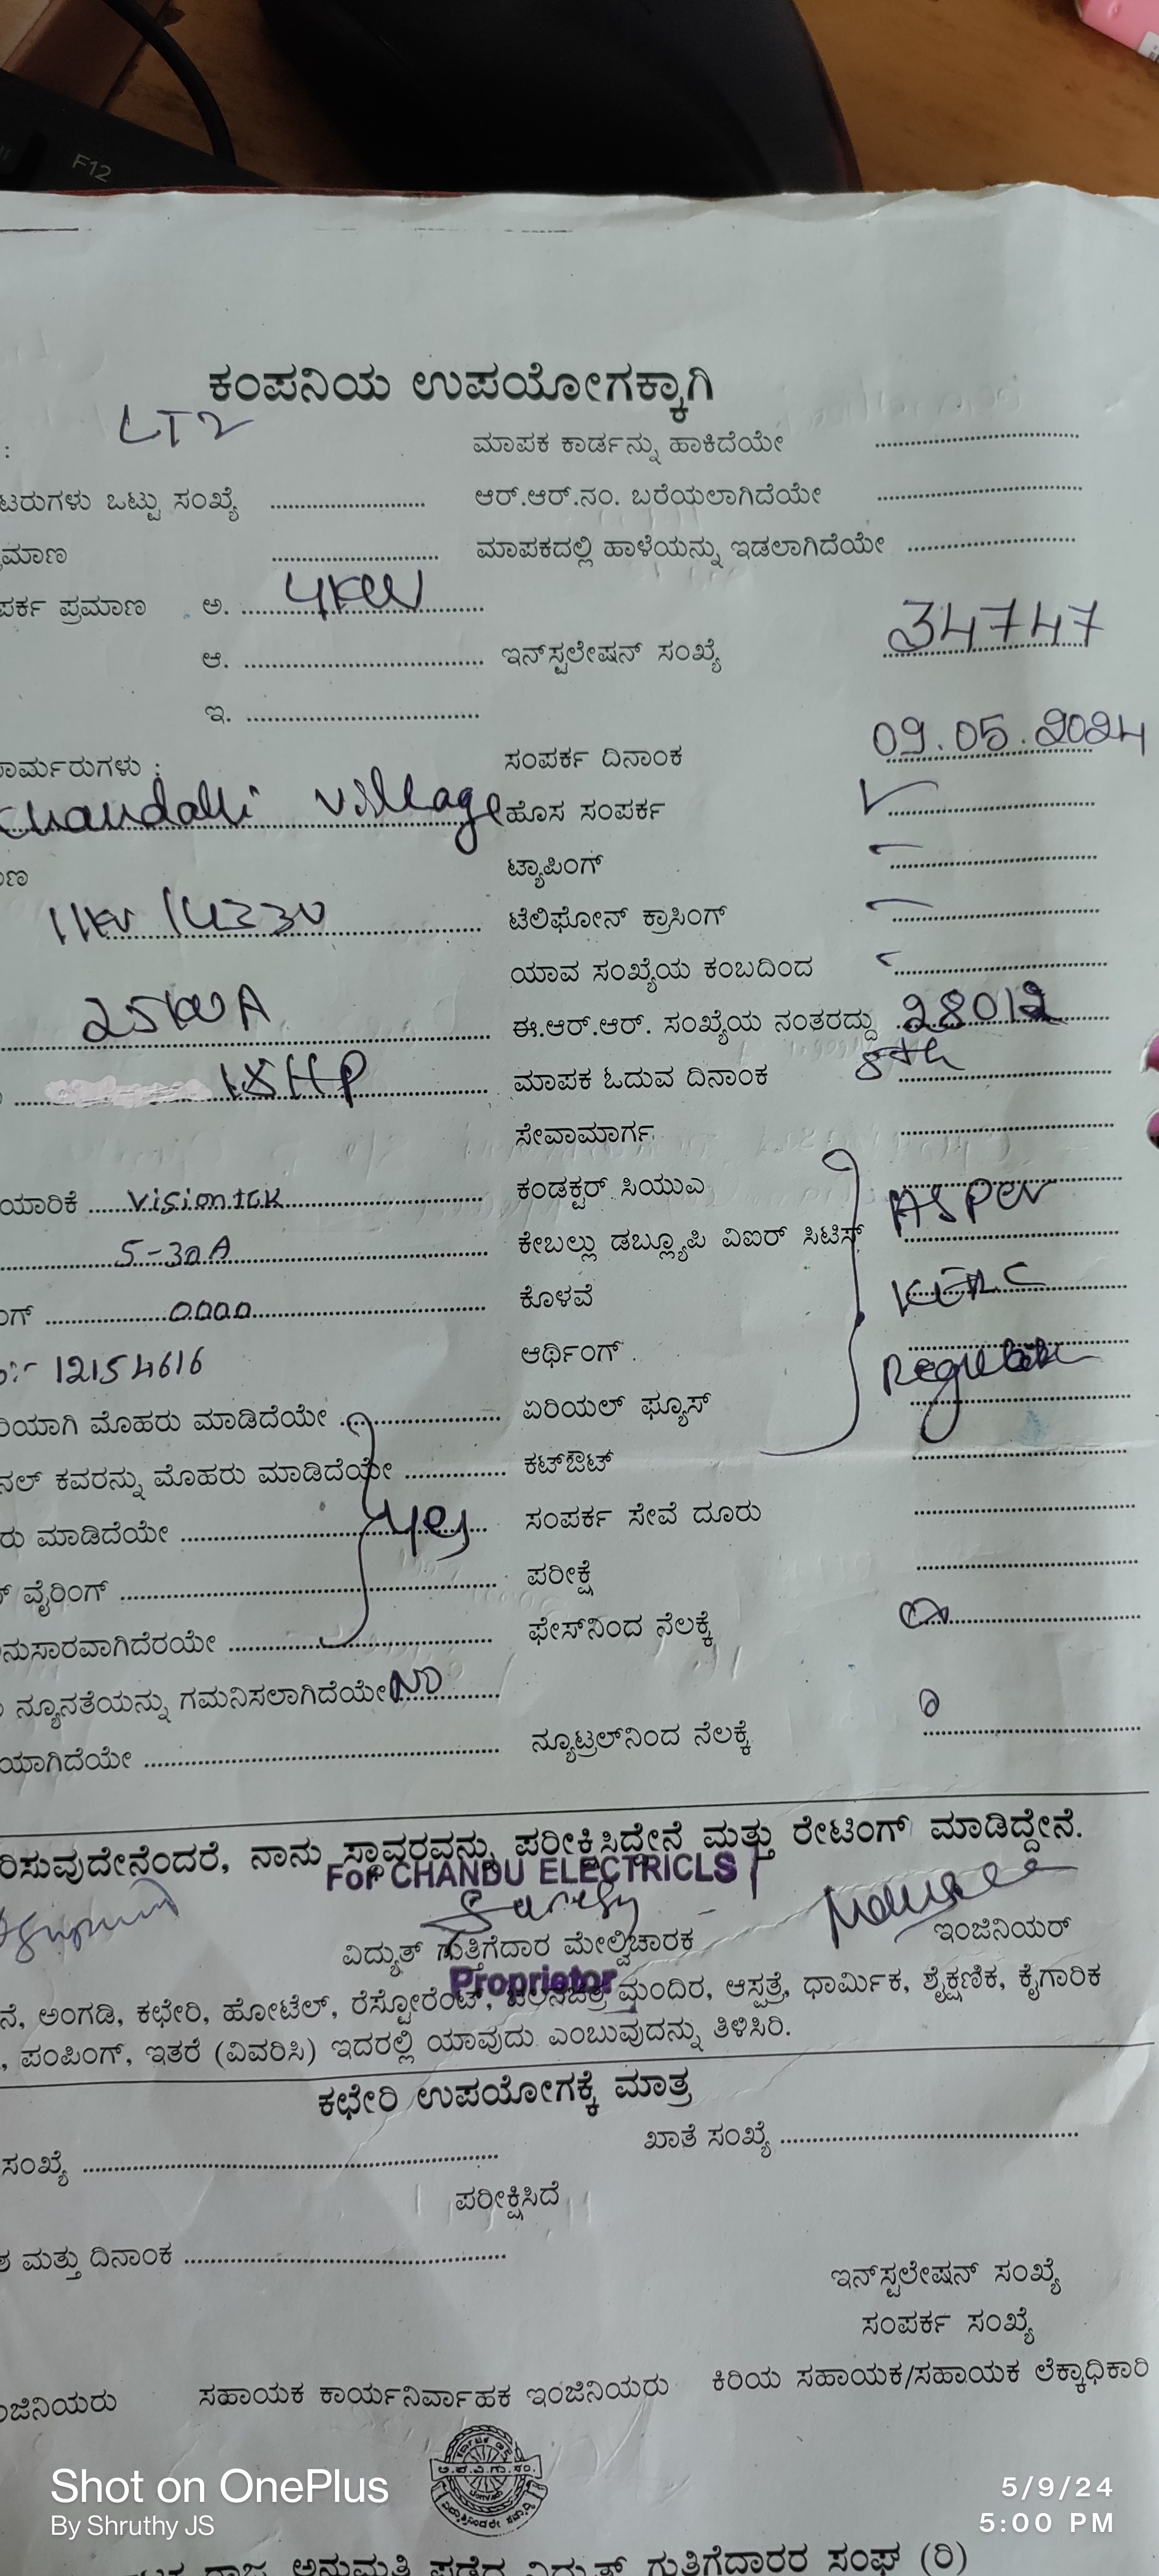 F12
ಕಂಪನಿಯ ಉಪಯೋಗಕ್ಕಾಗಿ
: LT2 ಮಾಪಕ ಕಾರ್ಡನ್ನು ಹಾಕಿದೆಯೇ
ಟರುಗಳು ಒಟ್ಟು ಸಂಖ್ಯೆ ಆರ್.ಆರ್.ನಂ. ಬರೆಯಲಾಗಿದೆಯೇ
ಮಾಣ ಮಾಪಕದಲ್ಲಿ ಹಾಳೆಯನ್ನು ಇಡಲಾಗಿದೆಯೇ
ಪರ್ಕ ಪ್ರಮಾಣ ಅ. 4KW
ಆ. ಇನ್‌ಸ್ಟಲೇಷನ್ ಸಂಖ್ಯೆ 34747
ಇ.
ಾರ್ಮರುಗಳು : ಸಂಪರ್ಕ ದಿನಾಂಕ 09.05.2024
village ಹೊಸ ಸಂಪರ್ಕ ✓
ಾಣ ಟ್ಯಾಪಿಂಗ್ -
11KV ಟೆಲಿಫೋನ್ ಕ್ರಾಸಿಂಗ್ -
ಯಾವ ಸಂಖ್ಯೆಯ ಕಂಬದಿಂದ -
ಈ.ಆರ್.ಆರ್. ಸಂಖ್ಯೆಯ ನಂತರದ್ದು 28012
HP ಮಾಪಕ ಓದುವ ದಿನಾಂಕ 8th
ಸೇವಾಮಾರ್ಗ
ಯಾರಿಕೆ Visiontek ಕಂಡಕ್ಟರ್ ಸಿಯುಎ As Per
5-30A ಕೇಬಲ್ಲು ಡಬ್ಲ್ಯೂಪಿ ವಿಐರ್ ಸಿಟಿಸ್
ಂಗ್ 0000 ಕೊಳವೆ KERC
12154616 ಆರ್ಥಿಂಗ್
ರಿಯಾಗಿ ಮೊಹರು ಮಾಡಿದೆಯೇ ಏರಿಯಲ್ ಫ್ಯೂಸ್
ನಲ್ ಕವರನ್ನು ಮೊಹರು ಮಾಡಿದೆಯೇ ಕಟ್‌ಔಟ್
ರು ಮಾಡಿದೆಯೇ yes ಸಂಪರ್ಕ ಸೇವೆ ದೂರು
ವೈರಿಂಗ್ ಪರೀಕ್ಷೆ
ನುಸಾರವಾಗಿದೆರಯೇ ಫೇಸ್‌ನಿಂದ ನೆಲಕ್ಕೆ
ನ್ಯೂನತೆಯನ್ನು ಗಮನಿಸಲಾಗಿದೆಯೇ NO
ಯಾಗಿದೆಯೇ ನ್ಯೂಟ್ರಲ್‌ನಿಂದ ನೆಲಕ್ಕೆ
ರಿಸುವುದೇನೆಂದರೆ, ನಾನು ಸ್ಥಾವರವನ್ನು ಪರೀಕ್ಷಿಸಿದ್ದೇನೆ ಮತ್ತು ರೇಟಿಂಗ್ ಮಾಡಿದ್ದೇನೆ.
FoR CHANDU ELECTRICLS
ವಿದ್ಯುತ್ ಗುತ್ತಿಗೆದಾರ ಮೇಲ್ವಿಚಾರಕ ಇಂಜಿನಿಯರ್
Proprietor
ನೆ, ಅಂಗಡಿ, ಕಛೇರಿ, ಹೋಟೆಲ್, ರೆಸ್ಟೋರೆಂಟ್, ಚಲನಚಿತ್ರ ಮಂದಿರ, ಆಸ್ಪತ್ರೆ, ಧಾರ್ಮಿಕ, ಶೈಕ್ಷಣಿಕ, ಕೈಗಾರಿಕ
, ಪಂಪಿಂಗ್, ಇತರೆ (ವಿವರಿಸಿ) ಇದರಲ್ಲಿ ಯಾವುದು ಎಂಬುವುದನ್ನು ತಿಳಿಸಿರಿ.
ಕಛೇರಿ ಉಪಯೋಗಕ್ಕೆ ಮಾತ್ರ
ಸಂಖ್ಯೆ ಖಾತೆ ಸಂಖ್ಯೆ
ಪರೀಕ್ಷಿಸಿದೆ
ಶ ಮತ್ತು ದಿನಾಂಕ
ಇನ್‌ಸ್ಟಲೇಷನ್ ಸಂಖ್ಯೆ
ಸಂಪರ್ಕ ಸಂಖ್ಯೆ
ಂಜಿನಿಯರು ಸಹಾಯಕ ಕಾರ್ಯನಿರ್ವಾಹಕ ಇಂಜಿನಿಯರು ಕಿರಿಯ ಸಹಾಯಕ/ಸಹಾಯಕ ಲೆಕ್ಕಾಧಿಕಾರಿ
Shot on OnePlus
By Shruthy JS
5/9/24
5:00 PM
ಅನುಮತಿ ಪಡೆದ ವಿದ್ಯುತ್ ಗುತ್ತಿಗೆದಾರರ ಸಂಘ (ರಿ)